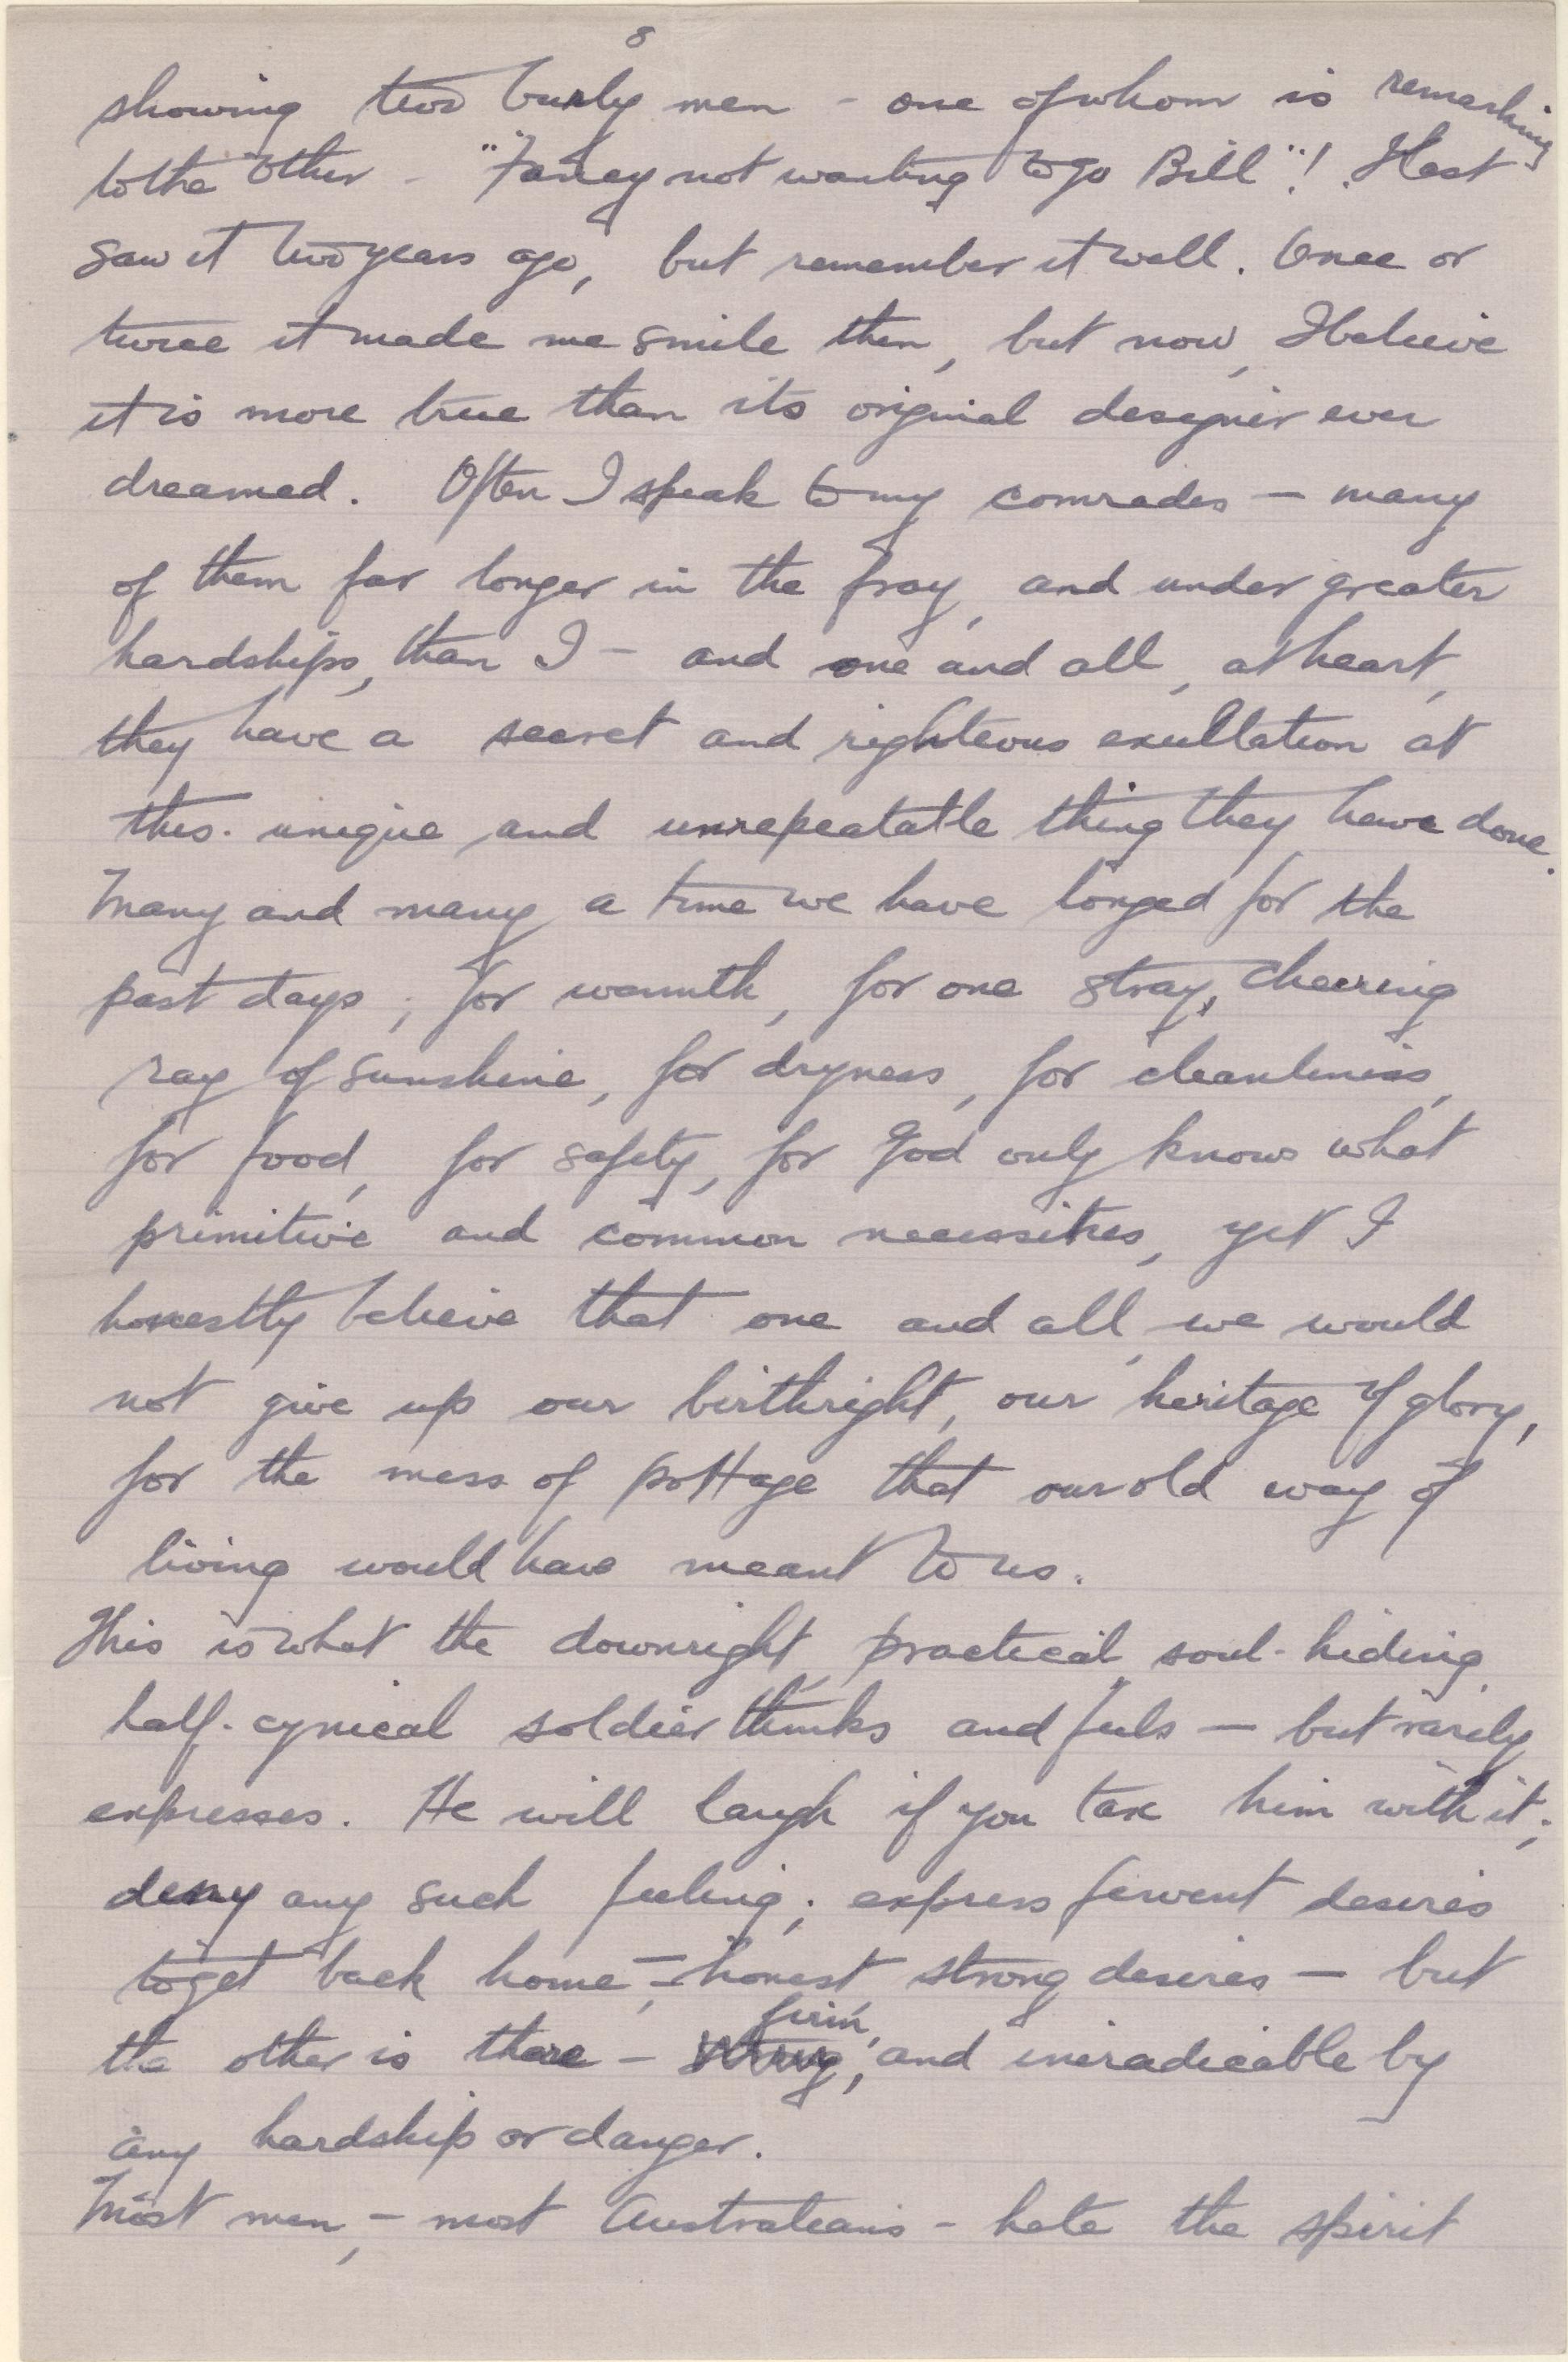 8
showing two burly men - one of whom is remarking
to the other - "Fancy not wanting to go Bill"! I last
saw it two years ago, but remember it well. Once or
twice it made me smile then, but now, I believe
it is more true than its original designer ever
dreamed. Often I speak to my comrades — many
of them far longer in the fray, and under greater
hardships, than I - and one and all, at heart,
they have a secret and righteous exultation at
this unique and unrepeatable thing they have done.
Many and many a time we have longed for the
past days; for warmth, for one stray, cheering
ray of sunshine, for dryness, for cleanliness,
for food, for safety, for God only knows what
primitive and common necessities, yet I
honestly believe that one and all, we would
not give up our birthright, our heritage of glory,
for the mess of pottage that our old way of
living would have meant to us.
This is what the downright, practical, soul-hiding,
half-cynical soldier thinks and feels — but rarely
expresses. He will laugh if you tax him with it;
deny any such feeling; express fervent desires
to get back home, - honest, strong desires — but
the other is there - strong, firm, and ineradicable by
any hardship or danger.
Most men, - most Australians - hate the spirit